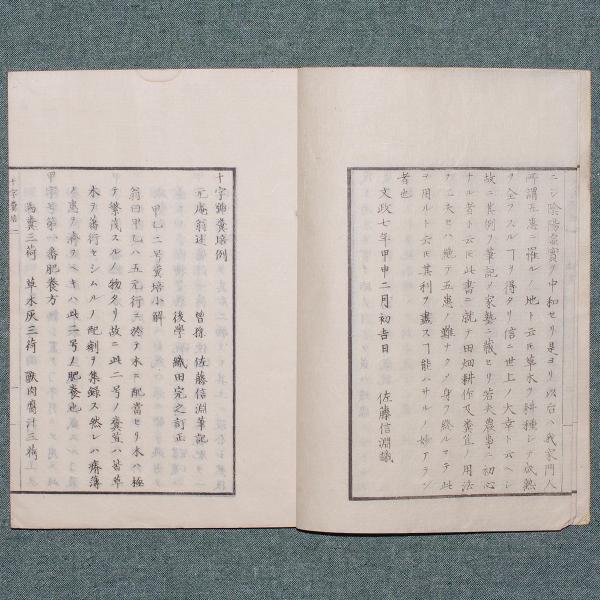 ニシ陰陽虚實ヲ中和セリ是ヨリ以后ハ我家門人
所謂五惠ニ罹ルノ地ト云𪜈草木ヲ耕種シテ成熟
ヲ全ヲスルヿヲ得タリ信ニ世上ノ大幸ト云ヘシ
故ニ其例ヲ筆記メ家塾ニ藏セリ若夫農事ニ初心
ナル者ト云𪜈此書ニ就テ田畑耕作及糞苴ノ用法
ヲ工夫セハ絶テ五惠ノ難ナク身ヲ終ルマテ此
ヲ用ルト云𪜈其利ヲ盡スヿ能ハサルノ妙アラン
者也
文政七年甲申二月初吉日
佐藤信淵識
十字號糞培例
元庵翁述
曾孫 佐藤信淵筆記
後學 織田完之訂正
甲乙二号糞培小解
翁曰甲乙ハ五元行ニ於テ木ニ配當セリ木ハ極
テ繁茂スルノ物タリ故ニ此二号ノ糞苴ハ甚草
木ヲ蕃衍セシムルノ配劑ヲ集録ス然レハ瘠薄
ノ惠ヲ濟フヘキハ此二号ノ肥養也
甲字号第一番肥養方
馬糞三荷 草木灰三荷 獸肉腐汁三荷
十字糞培